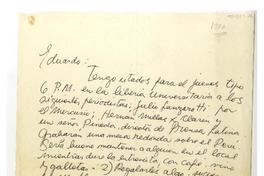 Eduardo:
Tengo citados para el jueves tipo
6 P.M. en la librería universitaria a los
siguientes periodistas; Julio Lanzarotti por
El Mercurio; Hernán Millas x Clarín y
un señor Pineda, director de Prensa Latina
Grabarán una mesa redonda sobre el Perú
Sería bueno mantener a alguien en el local
mientras dura la entrevista, con café, vino
y galletas. - 2) Regalarles algo,